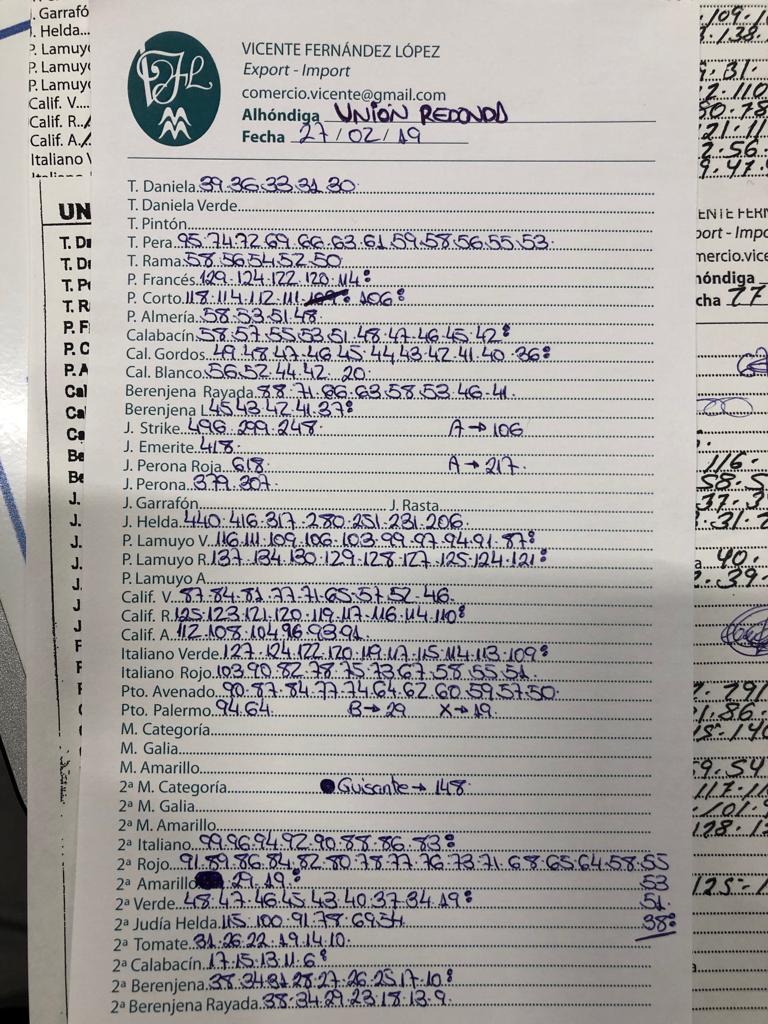 VICENTE FERNÁNDEZ LÓPEZ
Export - Import
comercio.vicente@gmail.com
Alhóndiga UNIÓN REDONDA
Fecha 27/02/19
T. Daniela 39.36.33.31.30.
T. Daniela Verde
T. Pintón
T. Pera 95.74.72.69.66.63.61.59.58.56.55.53.
T. Rama 58.56.54.52.50
P. Francés 129.124.122.120.114:
P. Corto 118.114.112.111. 106:
P. Almería 58.53.51.48.
Calabacín 58.57.55.53.51.48.47.46.45.42:
Cal. Gordos 49.48.47.46.45.44.43.42.41.40.36:
Cal. Blanco 56.52.44.42.20.
Berenjena Rayada 88.71.66.63.58.53.46.41.
Berenjena L 45.43.42.41.37:
J. Strike 496.299.248. A→106
J. Emerite 418.
J. Perona Roja 618. A→217.
J. Perona 379.207.
J. Garrafón J. Rasta
J. Helda 440.416.317.280.251.231.206.
P. Lamuyo V. 116.111.109.106.103.99.97.94.91.87:
P. Lamuyo R. 137.134.130.129.128.127.125.124.121:
P. Lamuyo A.
Calif. V. 87.84.81.77.71.65.57.52.46.
Calif. R. 125.123.121.120.119.117.116.114.110:
Calif. A. 112.108.104.96.93.91.
Italiano Verde 127.124.122.120.119.117.115.114.113.109:
Italiano Rojo 103.90.82.78.75.73.67.58.55.51.
Pto. Avenado 90.87.84.77.74.64.62.60.59.57.50.
Pto. Palermo 94.64. B→29 X→19.
M. Categoría
M. Galia
M. Amarillo
2ª M. Categoría Guisante→148.
2ª M. Galia
2ª M. Amarillo
2ª Italiano 99.96.94.92.90.88.86.83:
2ª Rojo 91.89.86.84.82.80.78.77.76.73.71.68.65.64.58.55
2ª Amarillo 29.19: 53
2ª Verde 48.47.46.45.43.40.37.34.19: 51.
2ª Judía Helda 115.100.91.78.69.54 38:
2ª Tomate 31.26.22.19.14.10.
2ª Calabacín 17.15.13.11.6:
2ª Berenjena 38.34.31.28.27.26.25.17.10:
2ª Berenjena Rayada 38.34.29.23.18.13.9.